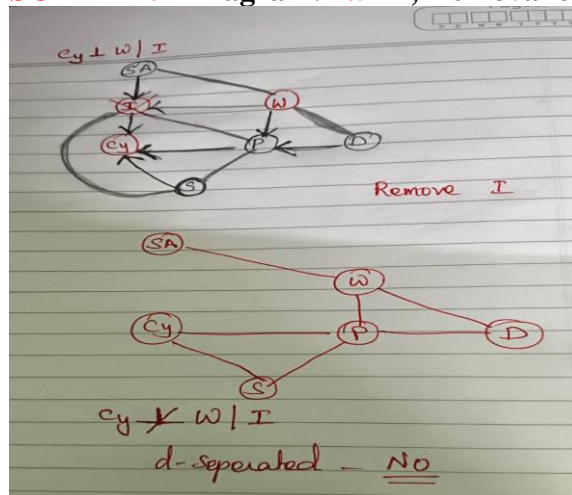 Cy ⊥ W / I
SA
I
W
Cy
P
D
S
Remove I
SA
W
Cy
P
D
S
Cy ⊥̸ W | I
d-seperated - NO